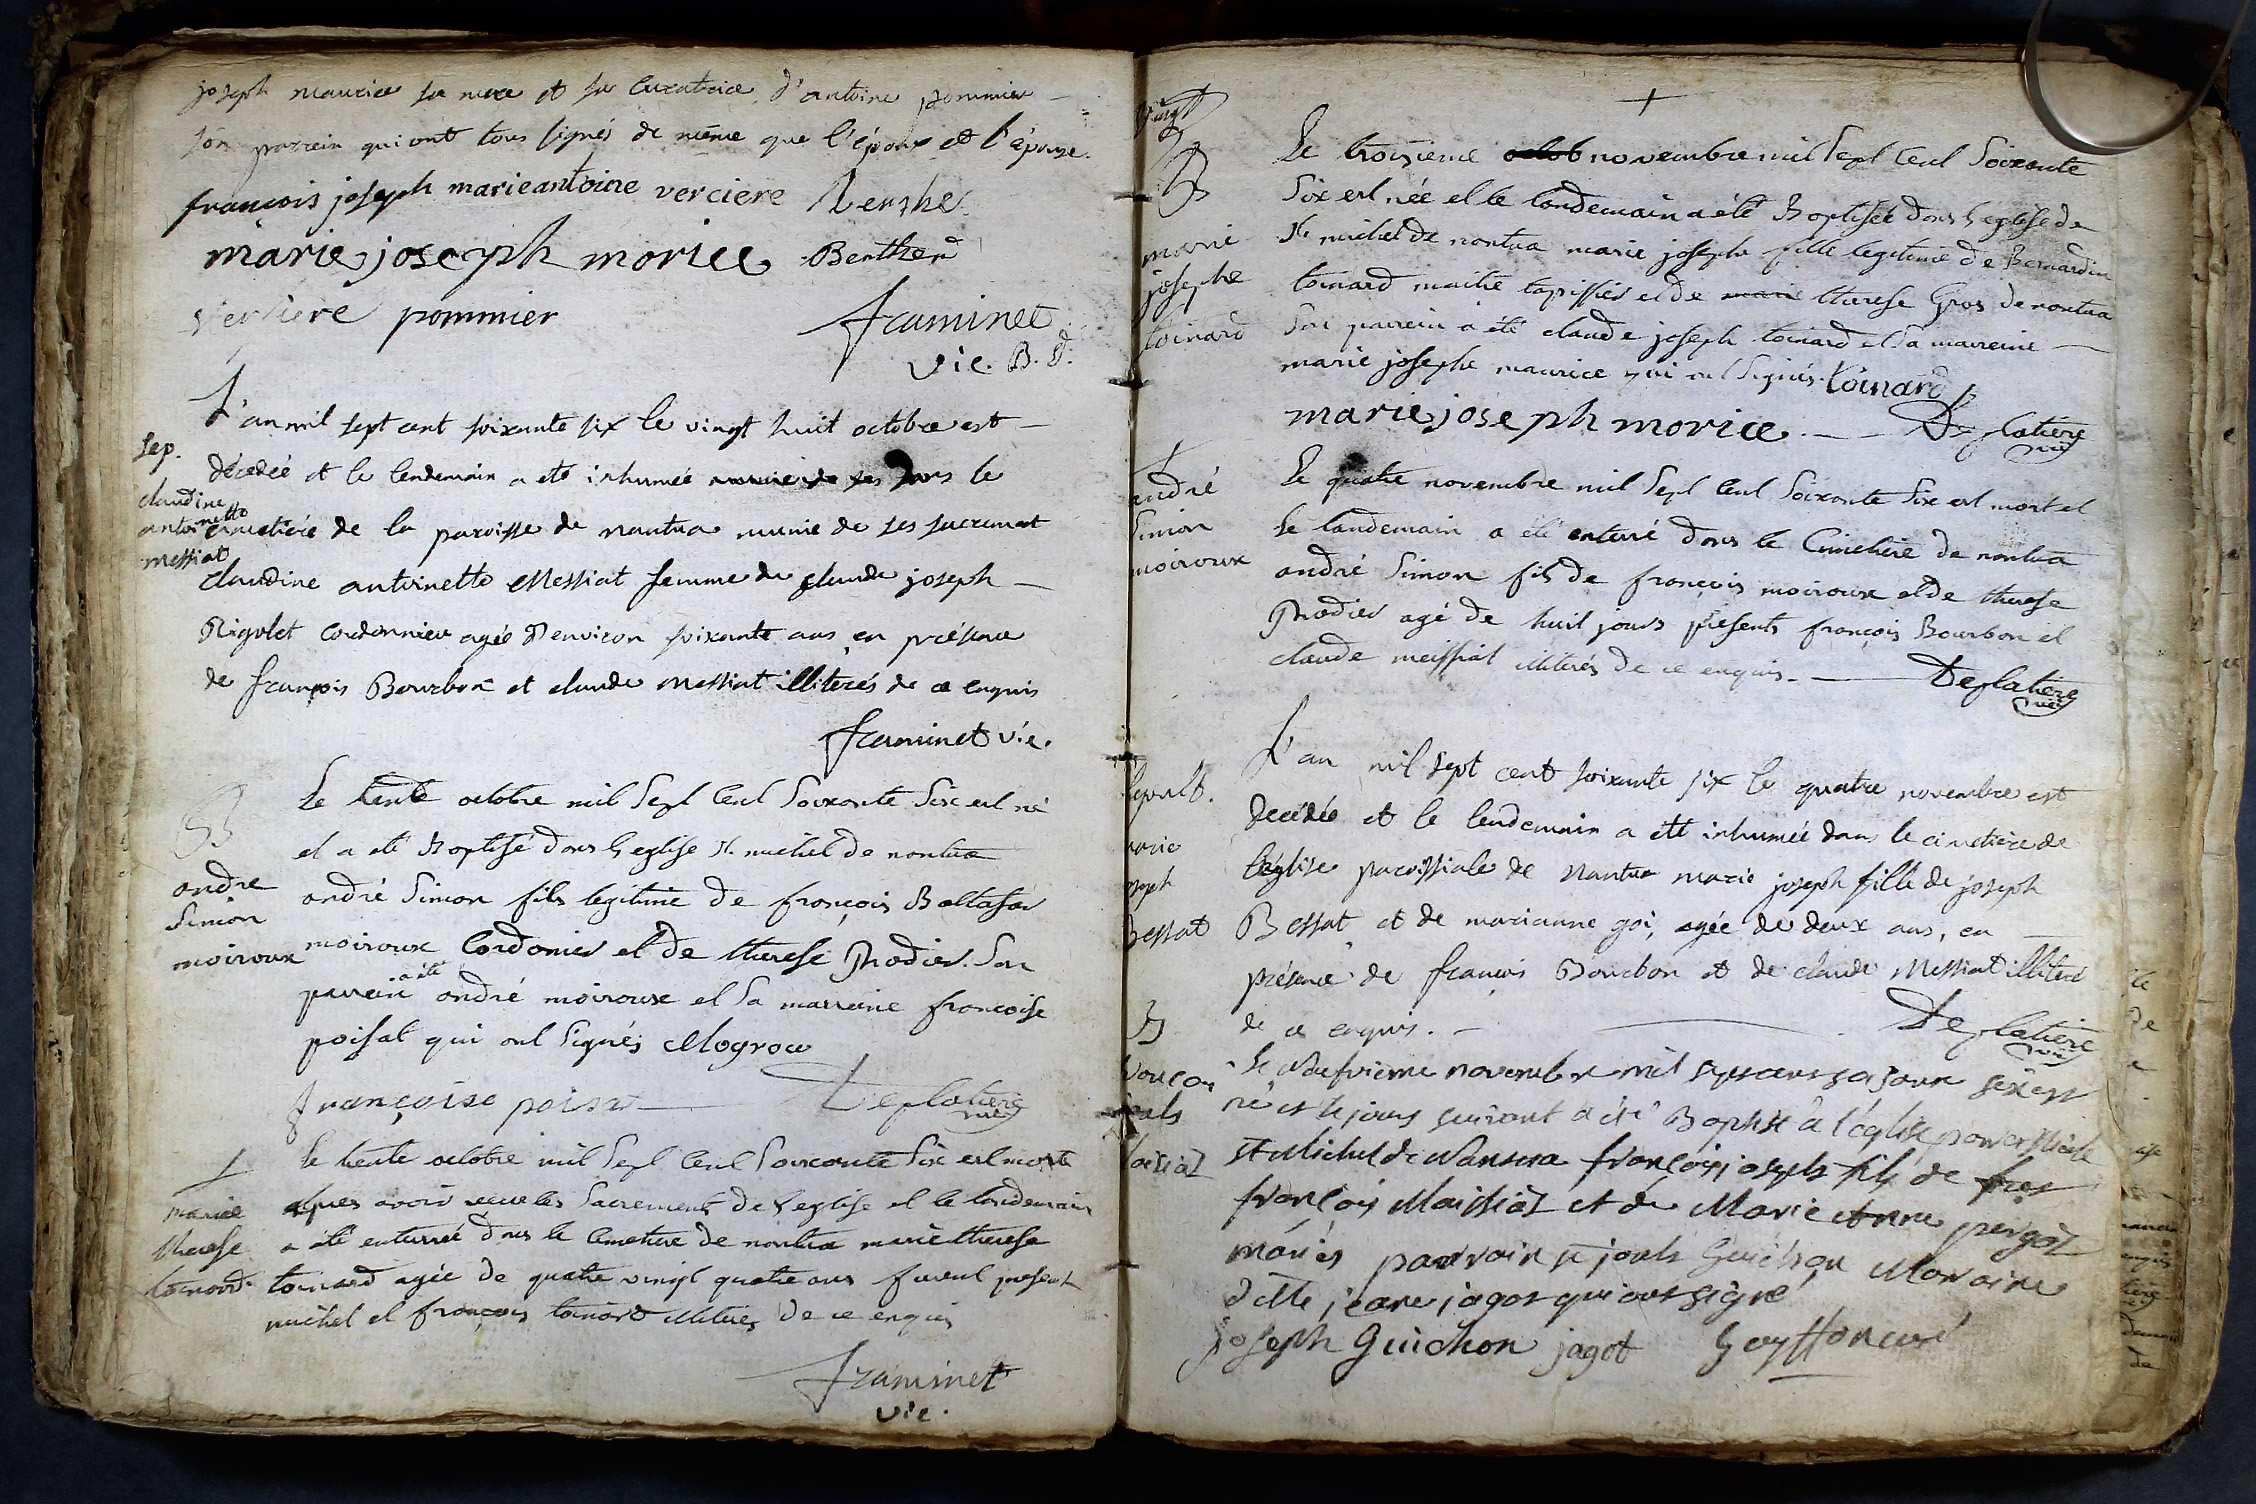 joseph maurice sa mere et sa curatrice, d'antoine pommier
son parrein qui ont tous signés de même que l'époux et l'épouse.
françois joseph marie antoine verciere
marie joseph morice Berthet
verciere pommier framinet
vic. B. d.
sep.
claudine
antoinette
messiat
L'an mil sept cent soixante six le vingt huit octobre est
décedée et le lendemain a été inhumée dans le
cimetière de la paroisse de nantua munie de ses sacrement
claudine antoinette Messiat femme de claude joseph
Rigolet cordonnier agée d'environ soixante ans en présence
de françois Bourbon et claude Messiat illiterés de ce enquis
framinet vic.
B
andre
Simon
moiroux
Le trente octobre mil Sept Cent Soixante Six est né
et a été Baptisé dans l'eglise St. michel de nantua
andré Simon fils legitime de françois Baltasar
moiroux Cordonier et de therese Rodier. Son
parrein a été andré moiroux et sa marreine francoise
poisat qui ont Signés Mogrou
françoise poisat Deflatiere
vic
marie
therese
toinard
Le trente octobre mil Sept Cent Soixante Six est morte
apres avoir reçu les Sacrements de l'eglise et le landemain
a été enterrée dans le Cimetiere de nantua marie therese
toinard agée de quatre vingt quatre ans furent present
michel et françois toinard illiterés de ce enquis
framinet
vic.
vingt
B
marie
josephe
toinard
Le troisieme octob novembre mil Sept Cent Soixante
Six est née et le landemain a été Baptisée dans l'eglise de
St. michel de nantua marie josephe fille legitime de Bernardin
toinard maitre tapissier et de marie therese Gros de nantua
Son parrein a été claude joseph toinard et sa marreine
marie josephe maurice qui ont Signés. toinard
marie joseph morice. Deflatiere
vic
andré
Simon
moiroux
Le quatre novembre mil Sept Cent Soixante Six est mort et
le landemain a été enterré dans le Cimetiere de nantua
andré Simon fils de françois moiroux et de therese
Rodier agé de huit jours presents françois Bourbon et
claude meissiat illiterés de ce enquis. Deflatiere
vic
sepult.
marie
joseph
Bessat
L'an mil sept cent soixante six le quatre novembre est
décédée et le lendemain a été inhumée dans le cimetière de
l'église paroissiale de Nantua marie joseph fille de joseph
Bessat et de marianne goi, agée de deux ans, en
présence de françois Bourbon et de claude Messiat illiteré
de ce enquis. Deflatiere
vic
B
Le Neufvieme novembre mil sept cens soisante six est
né et le jours suivant a été Baptisé a l'église parroissiale
st Michel de Nantua françois joseph fils de
françois Maissiat et de Marie Anne pergot
mariés parrain sr joseph Guichon Maraine
dlle jeane jagot qui ont signé
joseph Guichon jagot Guyffon curé